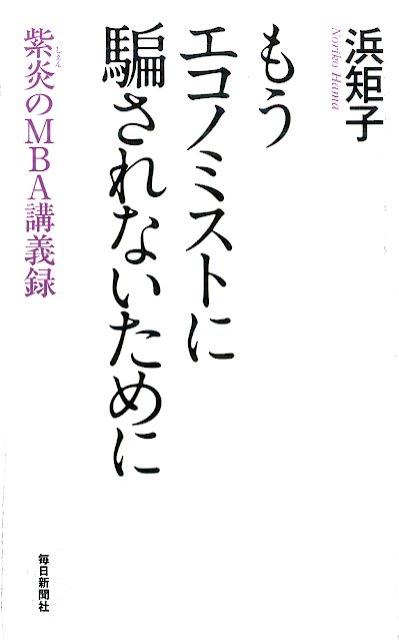 浜矩子
Noriko Hama
もう
エコノミストに
騙されないために
紫炎のMBA講義録
しえん
毎日新聞社